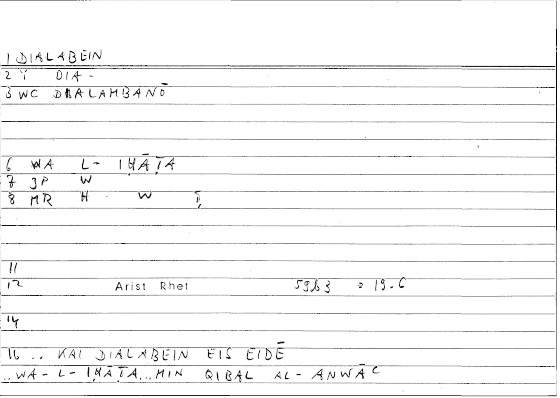 1 DIALABEIN
2 Y DIA-
3 WC DIALAMBANŌ
6 WA L- IḤĀṬA
7 3P W
8 MR H W Ṭ
11
12 Arist Rhet 5963 19.6
14
16 .. KAI DIALABEIN EIS EIDĒ
..WA-L-IḤĀṬA..MIN QIBAL AL-ANWĀC